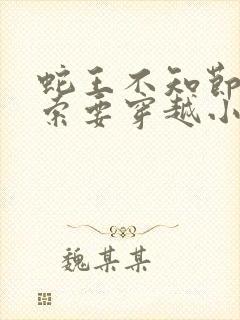 蛇王不知节
索要穿越小
魏某某